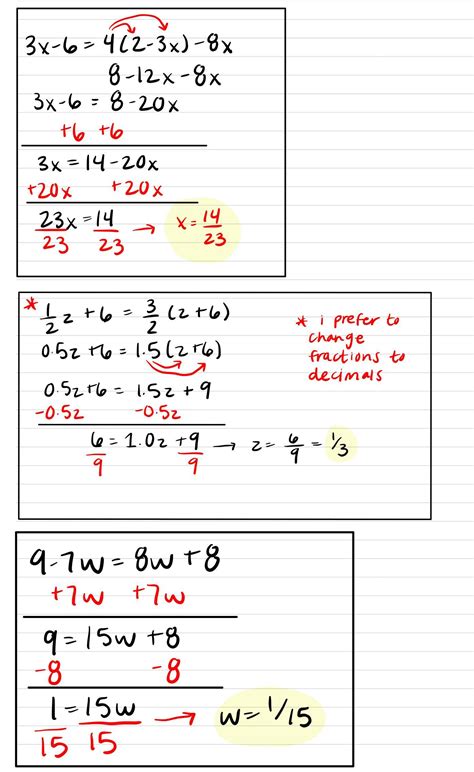 3x-6 = 4(2-3x)-8x
8-12x-8x
3x-6 = 8-20x
+6 +6
3x = 14-20x
+20x +20x
23x = 14 → x = 14/23
23 23
* 1/2 z + 6 = 3/2 (z+6)
0.5z+6 = 1.5(z+6)
0.5z+6 = 1.5z + 9
-0.5z -0.5z
6 = 1.0z + 9 → z = 6/9 = 1/3
9 9
* i prefer to
change
fractions to
decimals
9-7w = 8w+8
+7w +7w
9 = 15w +8
-8 -8
1 = 15w → w = 1/15
15 15